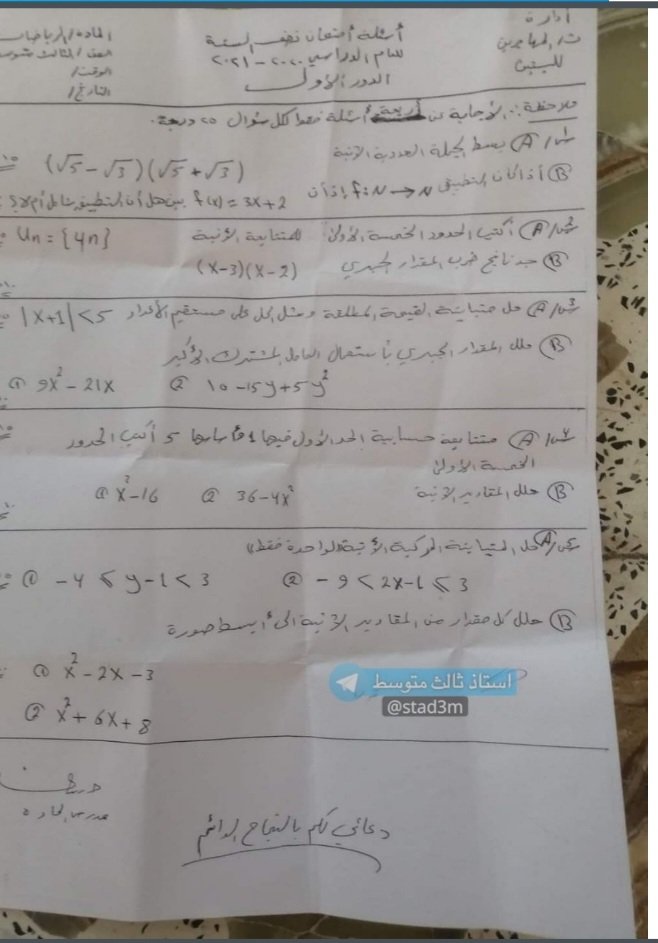 ادارة
ث/المهاجرين
للبنين
أسئلة أمتحان نصف السنة
للعام الدراسي ٢٠٢٠ - ٢٠٢١
الدور الاول
المادة/الرياضيات
الصف/الثالث متوسط
الوقت/
التاريخ/
ملاحظة: الأجابة عن أربعة أسئلة فقط لكل سؤال ٢٥ درجة.
س١/ A) بسط الجملة العددية الآتية (√5 - √3)(√5 + √3)
B) أذا كان التطبيق f: N → N إذ أن f(x) = 3x+2 بين هل أن التطبيق شامل أم لا؟
س٢/ A) أكتب الحدود الخمسة الأولى للمتتابعة الآتية Un = {4n}
B) جد ناتج ضرب المقدار الجبري (x-3)(x-2)
س٣/ A) حل متباينة القيمة المطلقة ومثل الحل على مستقيم الأعداد |x+1| < 5
B) حلل المقدار الجبري بأستعمال العامل المشترك الأكبر
① 9x² - 21x ② 10 - 15y + 5y²
س٤/ A) متتابعة حسابية الحد الأول فيها 1 وأساسها 5 أكتب الحدود
الخمسة الاولى
B) حلل المقادير الآتية ② 36 - 4x² ① x² - 16
س٥/ A) حل المتباينة المركبة الأتية (لواحدة فقط)
① -4 ≤ y-1 < 3 ② -9 < 2x-1 ≤ 3
B) حلل كل مقدار من المقادير الآتية الى أبسط صورة
① x² - 2x - 3
② x² + 6x + 8
استاذ ثالث متوسط
@stad3m
مدرس المادة
دعائي لكم بالنجاح الدائم